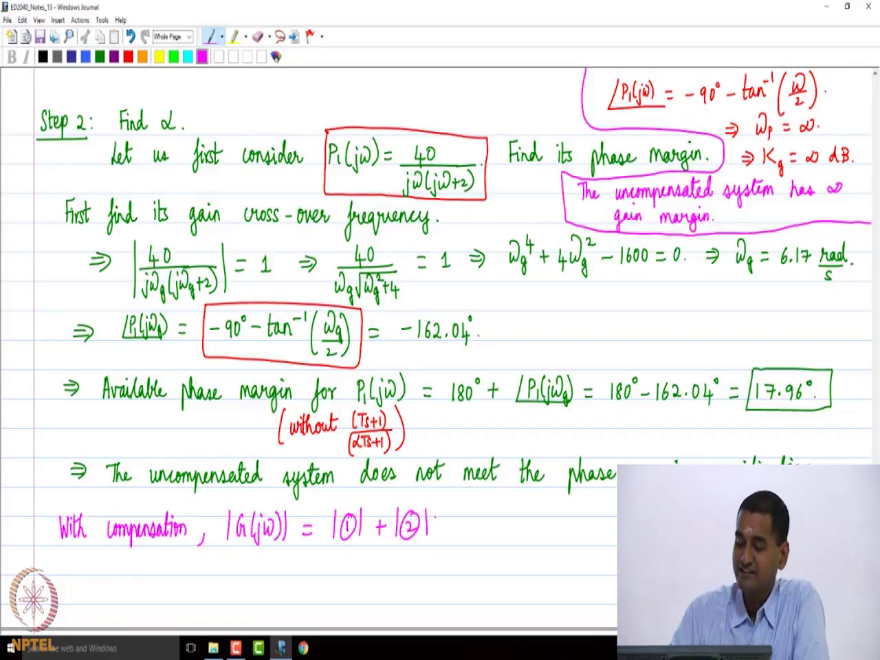 ED2040_Notes_13 - Windows Journal
File Edit View Insert Actions Tools Help
Whole Page
B I
∠P₁(jω) = -90° - tan⁻¹(ω/2).
⇒ ωₚ = ∞.
⇒ K_g = ∞ dB.
Step 2: Find α.
Let us first consider P₁(jω) = 40/(jω(jω+2)). Find its phase margin.
The uncompensated system has ∞
gain margin.
First find its gain cross-over frequency.
⇒ |40/(jω_g(jω_g+2))| = 1 ⇒ 40/(ω_g√(ω_g²+4)) = 1 ⇒ ω_g⁴ + 4ω_g² - 1600 = 0. ⇒ ω_g = 6.17 rad/s.
⇒ ∠P₁(jω_g) = -90° - tan⁻¹(ω_g/2) = -162.04°.
⇒ Available phase margin for P₁(jω) = 180° + ∠P₁(jω_g) = 180° - 162.04° = 17.96°.
(without (Ts+1)/(αTs+1))
⇒ The uncompensated system does not meet the phase
With compensation, |G(jω)| = |①| + |②|.
NPTEL
the web and Windows